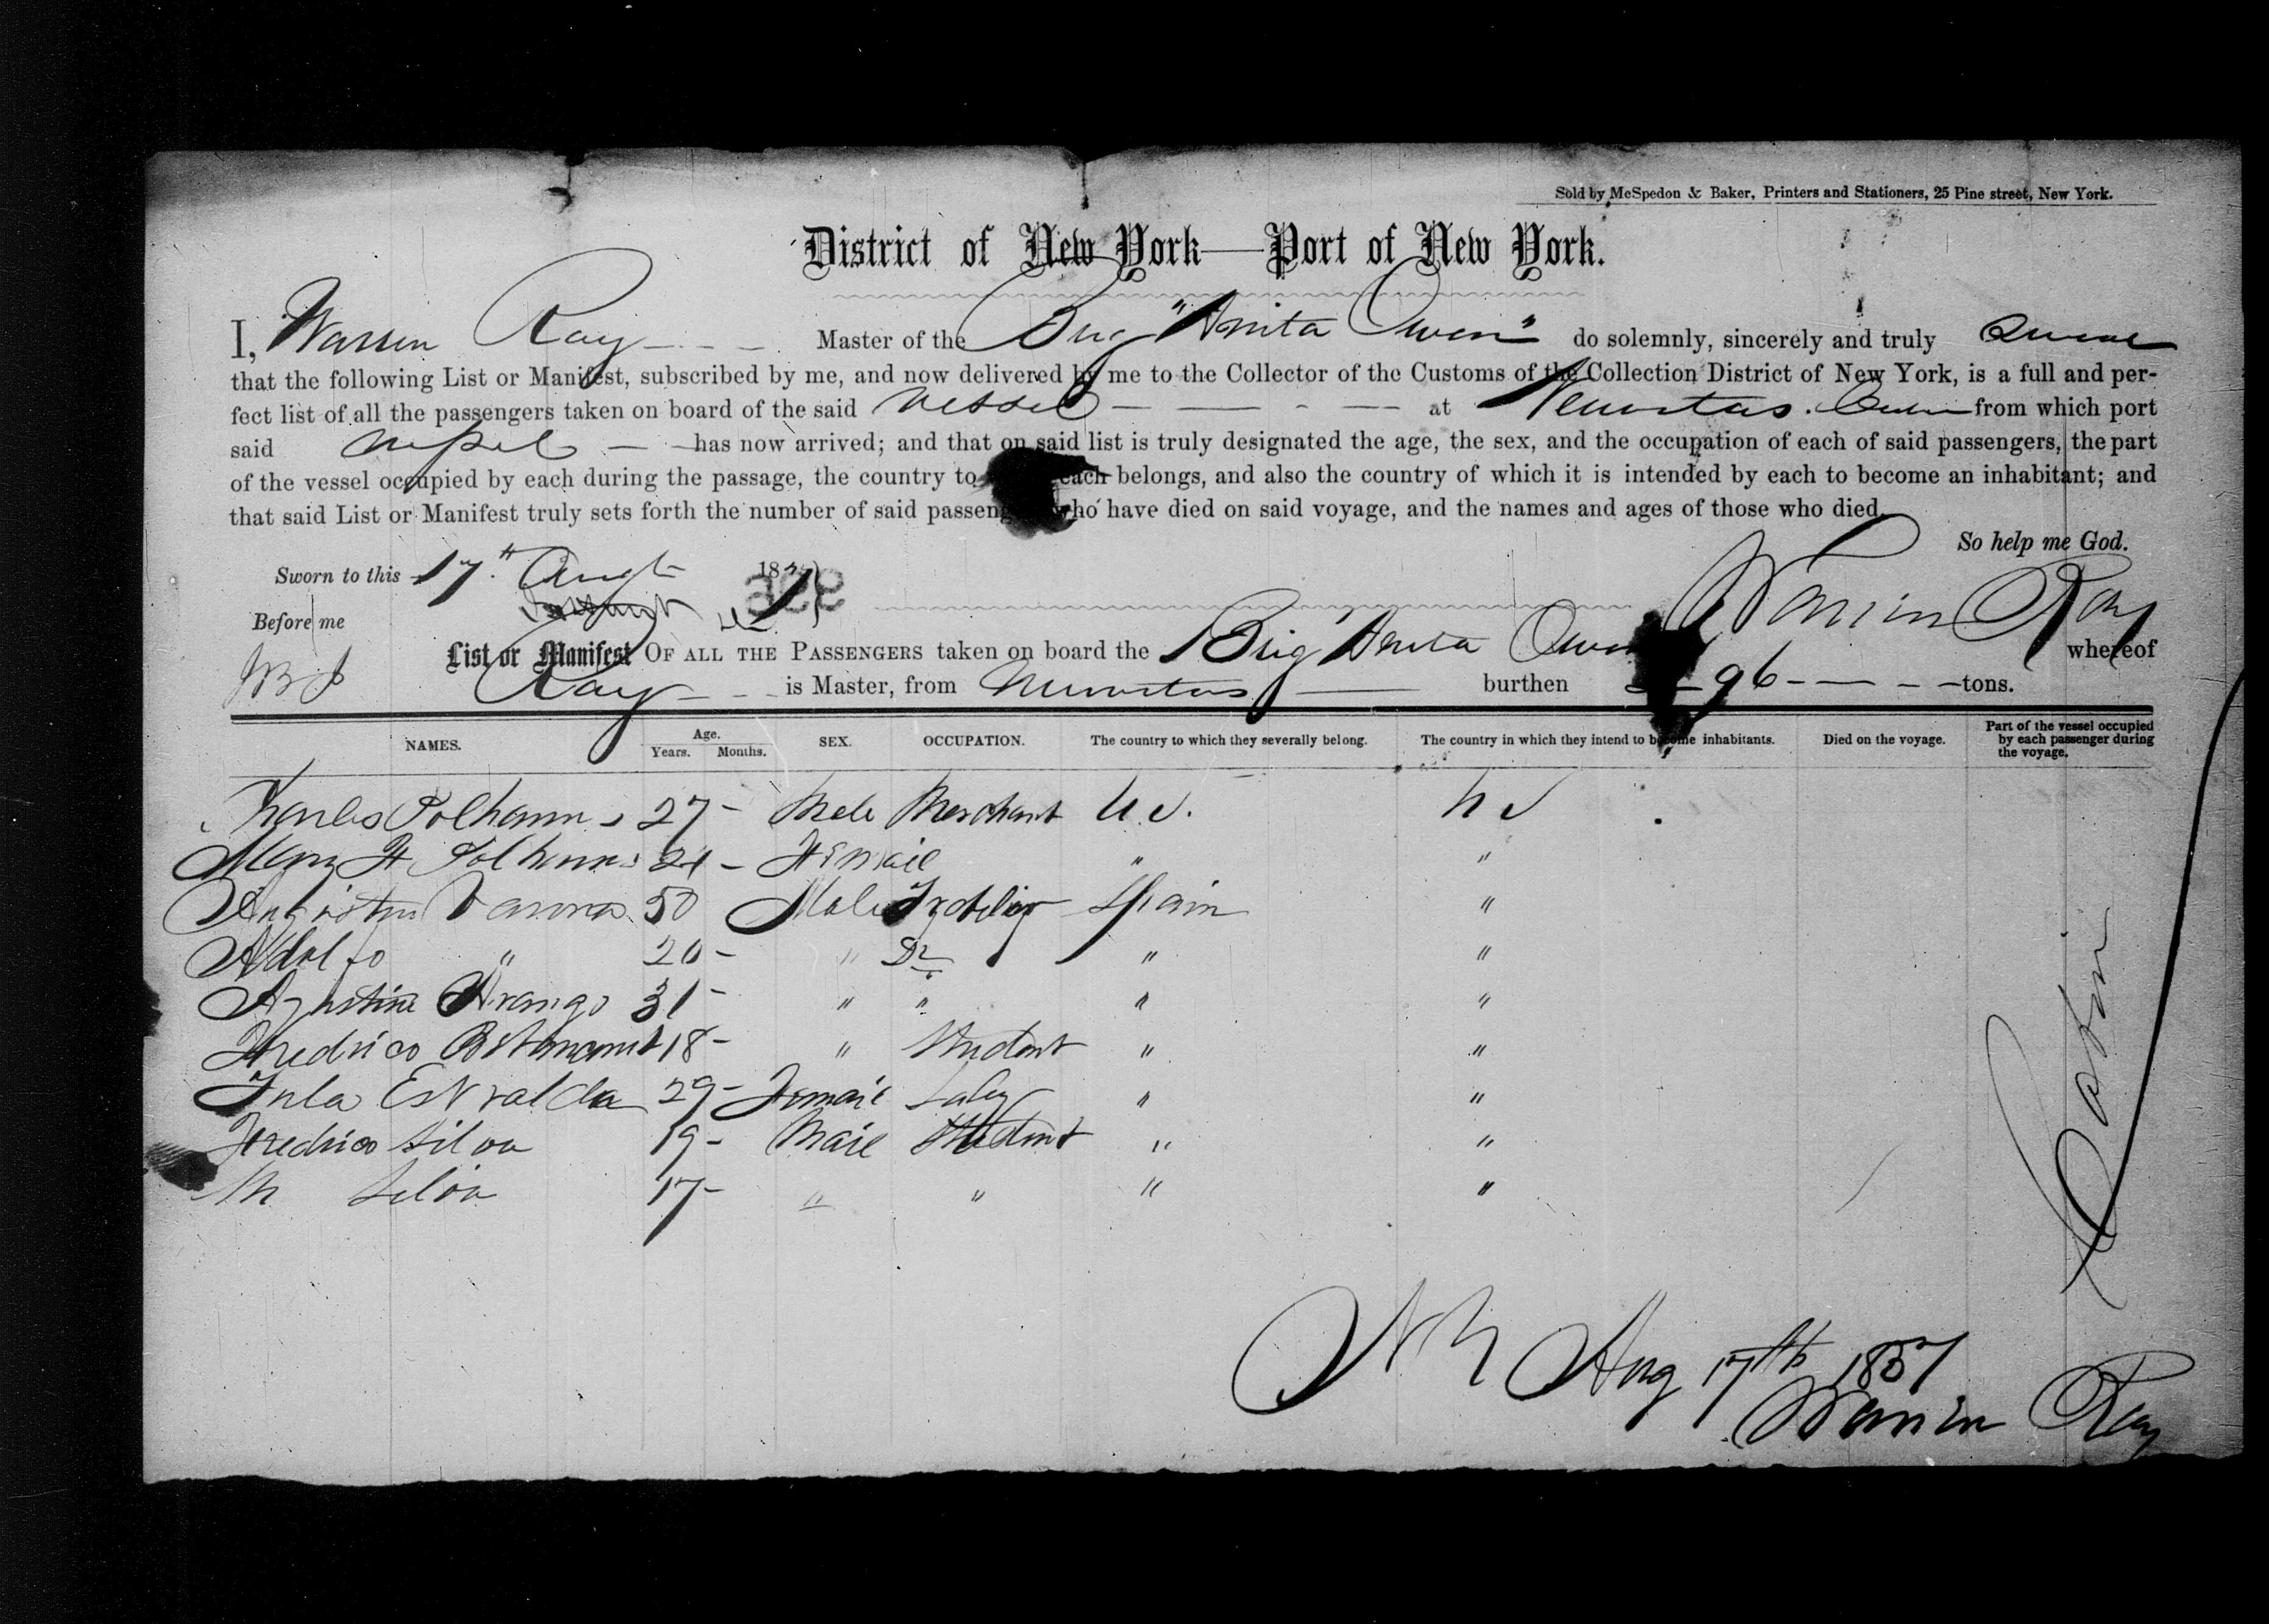 Sold by McSpedon & Baker, Printers and Stationers, 25 Pine street, New York.
District of New York—Port of New York.
I, Warren Ray - - - Master of the Brig "Anita Owen" do solemnly, sincerely and truly Swear
that the following List or Manifest, subscribed by me, and now delivered by me to the Collector of the Customs of the Collection District of New York, is a full and per-
fect list of all the passengers taken on board of the said vessel — — - — at Nuevitas. Cuba from which port
said vessel — has now arrived; and that on said list is truly designated the age, the sex, and the occupation of each of said passengers, the part
of the vessel occupied by each during the passage, the country to each belongs, and also the country of which it is intended by each to become an inhabitant; and
that said List or Manifest truly sets forth the number of said passen who have died on said voyage, and the names and ages of those who died.
So help me God.
Sworn to this 17th Augt 18
Before me
Warren Ray
List or Manifest OF ALL THE PASSENGERS taken on board the Brig Anita Owen whereof
Ray - - is Master, from Nuevitas — burthen 96 - — - - tons.
NAMES. Age. Years. Months. SEX. OCCUPATION. The country to which they severally belong. The country in which they intend to become inhabitants. Died on the voyage. Part of the vessel occupied by each passenger during the voyage.
Charles Polhamus 27 - Male Merchant U.S. U S
Mary H Polhamus 21 - Female " "
Augustus 50 Male Spain "
Adolfo " 20 - " Do " "
Agustine Arango 31 - " " " "
Fredrico 18 - " Student " "
29 - Female Lady " "
Fredrico Silva 19 - Male Student " "
M Silva 17 - " " " "
Cabin
N Y Aug 17th 1857
Warren Ray